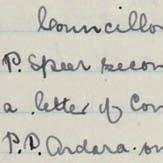 Councillo
P. Speer secon
a letter of Con
P.P. Ardara. on